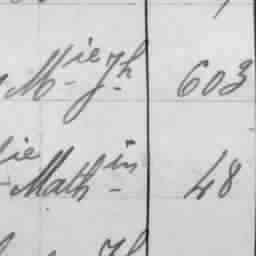 M^ie J^h 603
ie Math^in 48